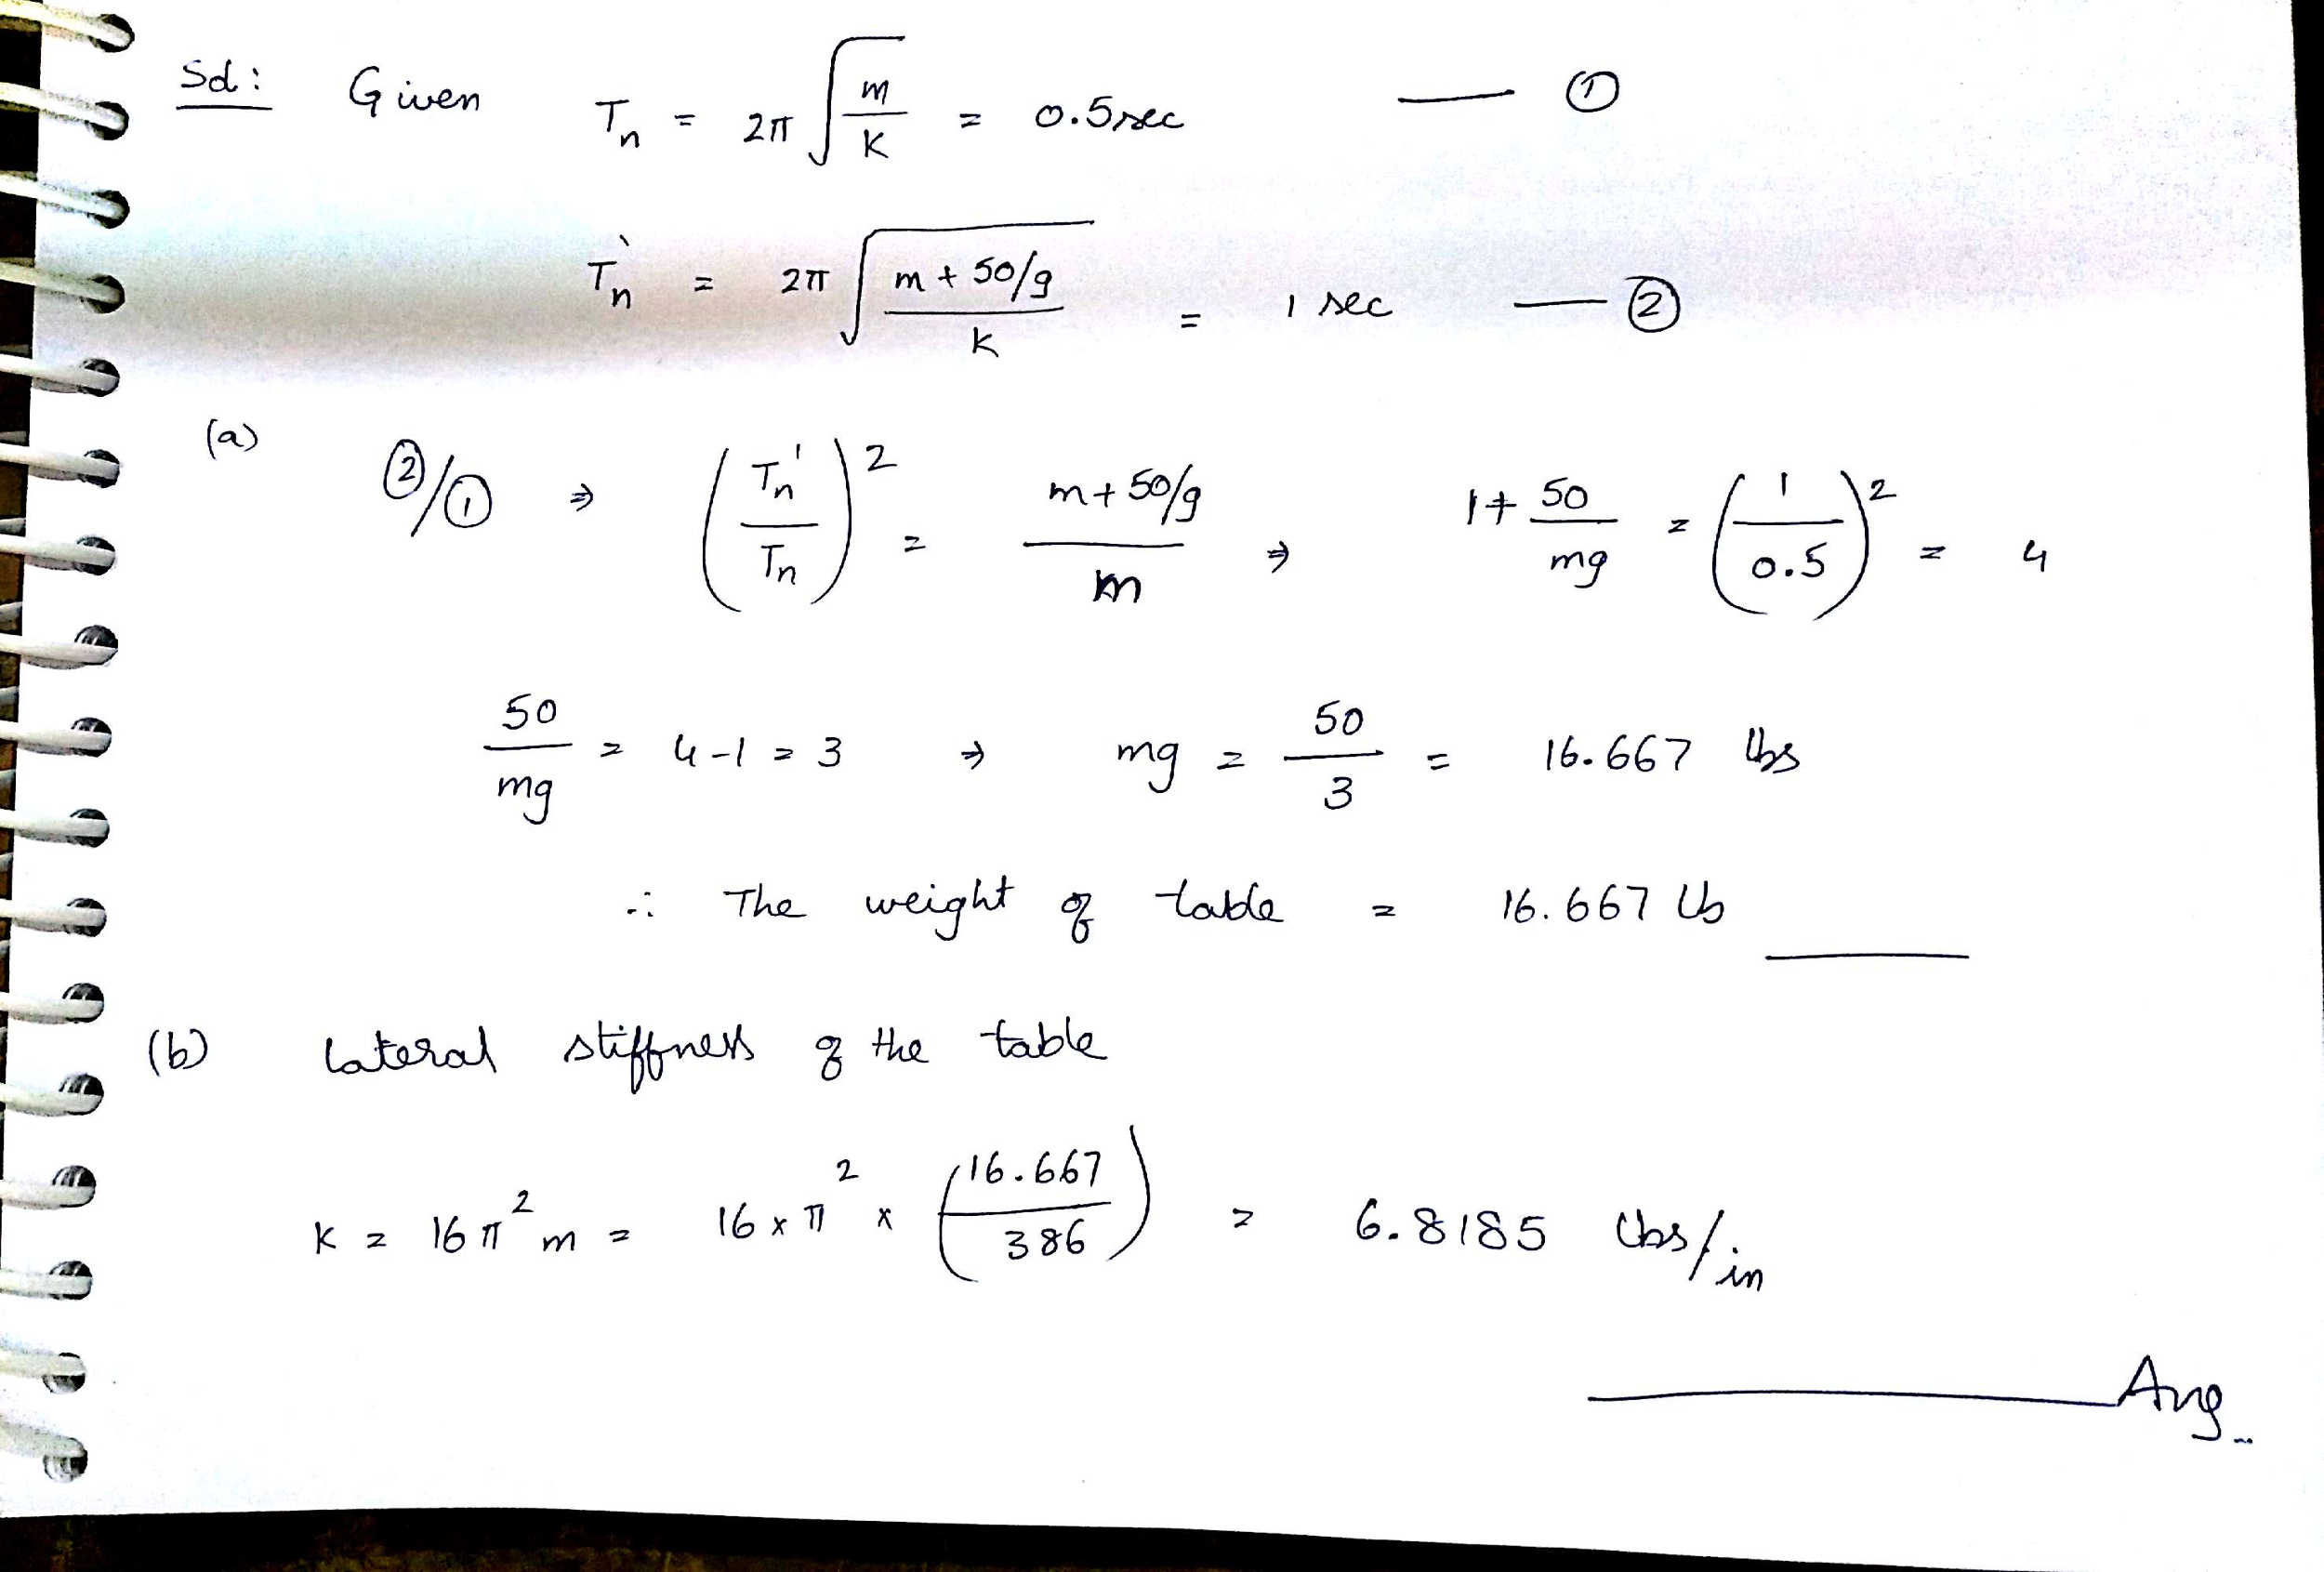 Sol: Given Tn = 2π √(m/K) = 0.5 sec — ①
Tn' = 2π √((m + 50/g)/K) = 1 sec — ②
(a) ②/① ⇒ (Tn'/Tn)² = (m + 50/g)/m ⇒ 1 + 50/mg = (1/0.5)² = 4
50/mg = 4-1 = 3 ⇒ mg = 50/3 = 16.667 lbs
∴ The weight of table = 16.667 lb
(b) lateral stiffness of the table
K = 16π²m = 16 x π² x (16.667/386) = 6.8185 lbs/in
Ans